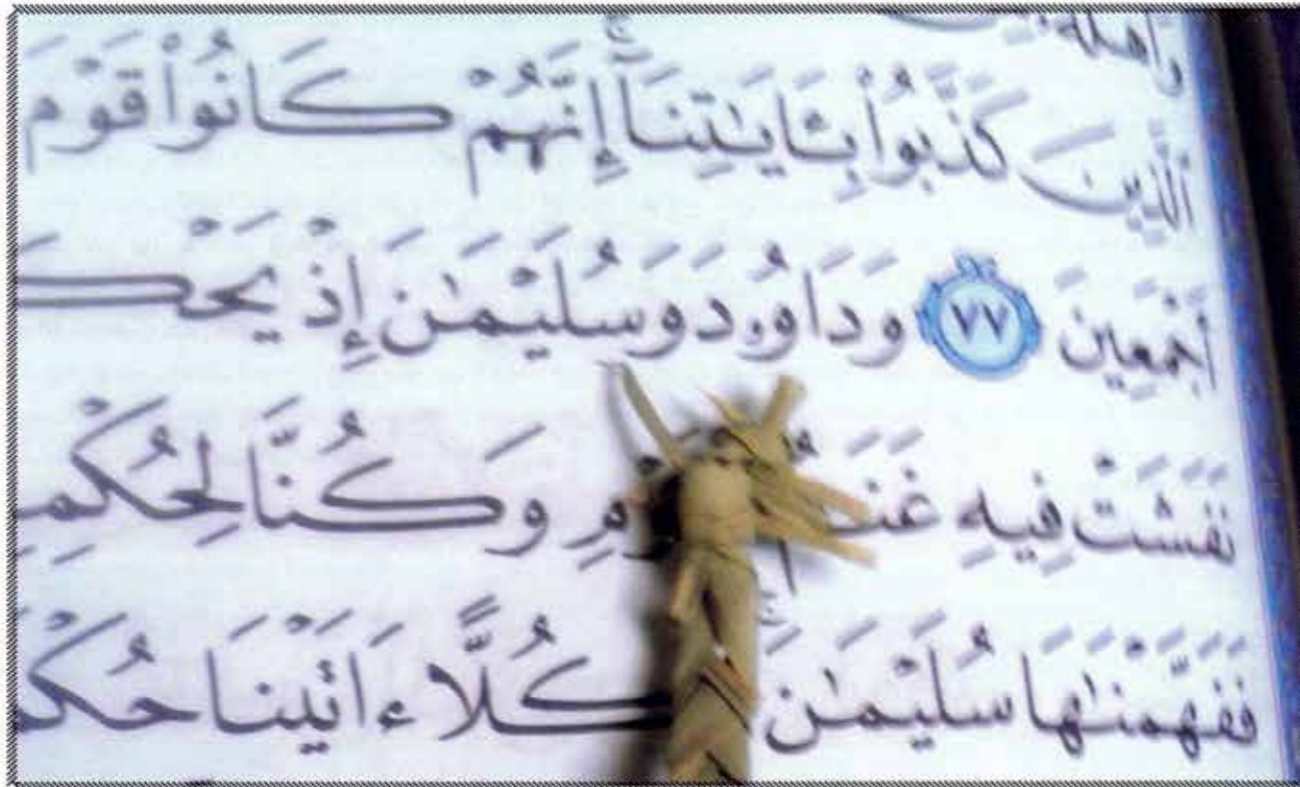 وَأَهْلَهُ
ٱلَّذِينَ كَذَّبُوا۟ بِـَٔايَـٰتِنَآ إِنَّهُمْ كَانُوا۟ قَوْمَ
أَجْمَعِينَ ٧٧ وَدَاوُۥدَ وَسُلَيْمَـٰنَ إِذْ يَحْكُ
نَفَشَتْ فِيهِ وَكُنَّا لِحُكْمِهِ
فَفَهَّمْنَـٰهَا سُلَيْمَـٰنَ كُلًّا ءَاتَيْنَا حُكْمًا